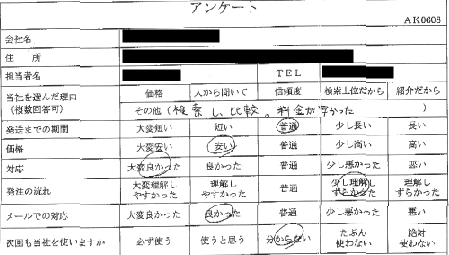 アンケート
AK0603
会社名
住 所
担当者名 TEL
当社を選んだ理由 価格 人から聞いて 信頼度 検索上位だから 紹介だから
(複数回答可) その他(検索し、比較。料金が安かった )
発送までの期間 大変短い 短い 普通 少し長い 長い
価格 大変安い 安い 普通 少し高い 高い
対応 大変良かった 良かった 普通 少し悪かった 悪い
発注の流れ 大変理解しやすかった 理解しやすかった 普通 少し理解しずらかった 理解しずらかった
メールでの対応 大変良かった 良かった 普通 少し悪かった 悪い
次回も当社を使いますか 必ず使う 使うと思う 分からない たぶん使わない 絶対使わない